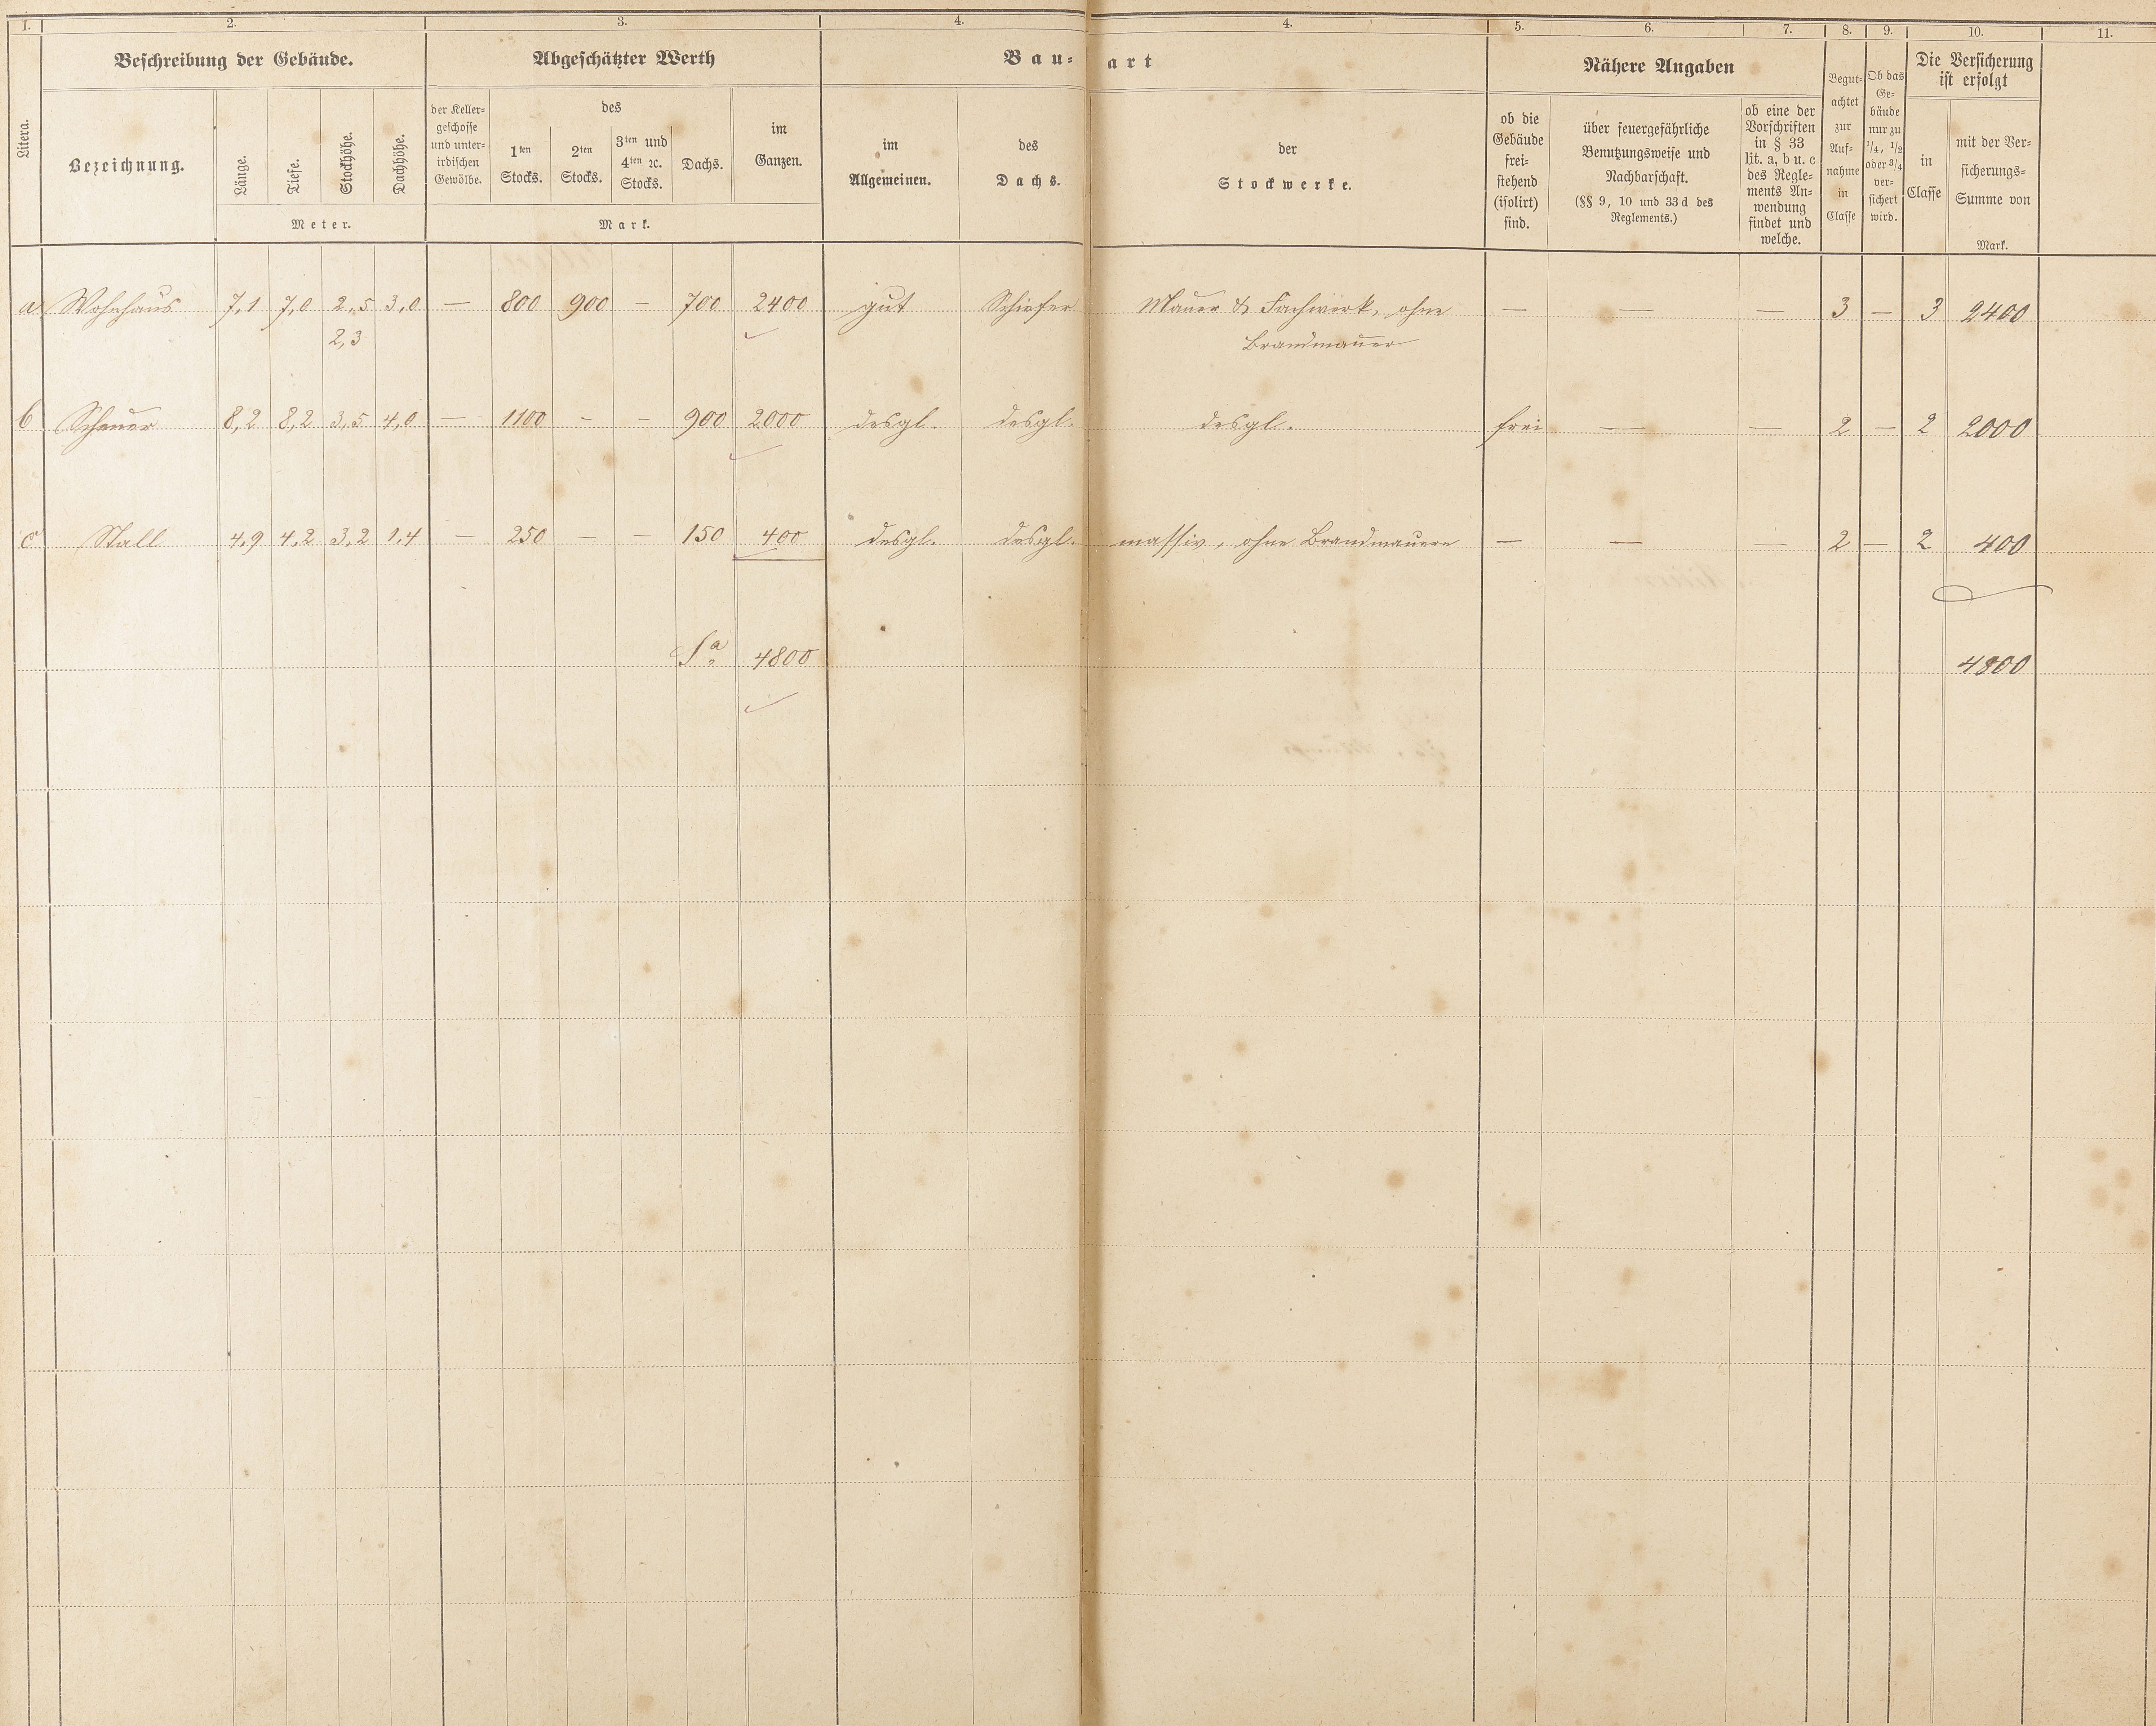 1. 2. 3. 4. 4. 5. 6. 7. 8. 9. 10. 11.
Beschreibung der Gebäude. Abgeschätzter Werth Bau- art Nähere Angaben Die Versicherung
ist erfolgt
Litera.
Bezeichnung.
Länge.
Tiefe.
Stockhöhe.
Dachhöhe.
Meter.
der Keller-
geschosse
und unter-
irdischen
Gewölbe.
des
1ten
Stocks.
2ten
Stocks.
3ten und
4ten ꝛc.
Stocks.
Dachs.
im
Ganzen.
Mark.
im
Allgemeinen.
des
Dachs.
der
Stockwerke.
ob die
Gebäude
frei-
stehend
(isolirt)
sind.
über feuergefährliche
Benutzungsweise und
Nachbarschaft.
(§§ 9, 10 und 33 d des
Reglements.)
ob eine der
Vorschriften
in § 33
lit. a, b u. c
des Regle-
ments An-
wendung
findet und
welche.
Begut-
achtet
zur
Auf-
nahme
in
Classe
Ob das
Ge-
bäude
nur zu
1/4, 1/2
oder 3/4
ver-
sichert
wird.
in
Classe
mit der Ver-
sicherungs-
Summe von
Mark.
a. Wohnhaus 7,1 7,0 2,5 3,0 — 800 900 — 700 2400 gut Schiefer Mauer & Fachwerk, ohne — — — 3 — 3 2400
2,3 Brandmauer
b Scheuer 8,2 8,2 3,5 4,0 — 1100 — — 900 2000 desgl. desgl. desgl. frei — — 2 — 2 2000
c Stall 4,9 4,2 3,2 1,4 — 250 — — 150 400 desgl. desgl. massiv, ohne Brandmauern — — — 2 — 2 400
Sa 4800 4800